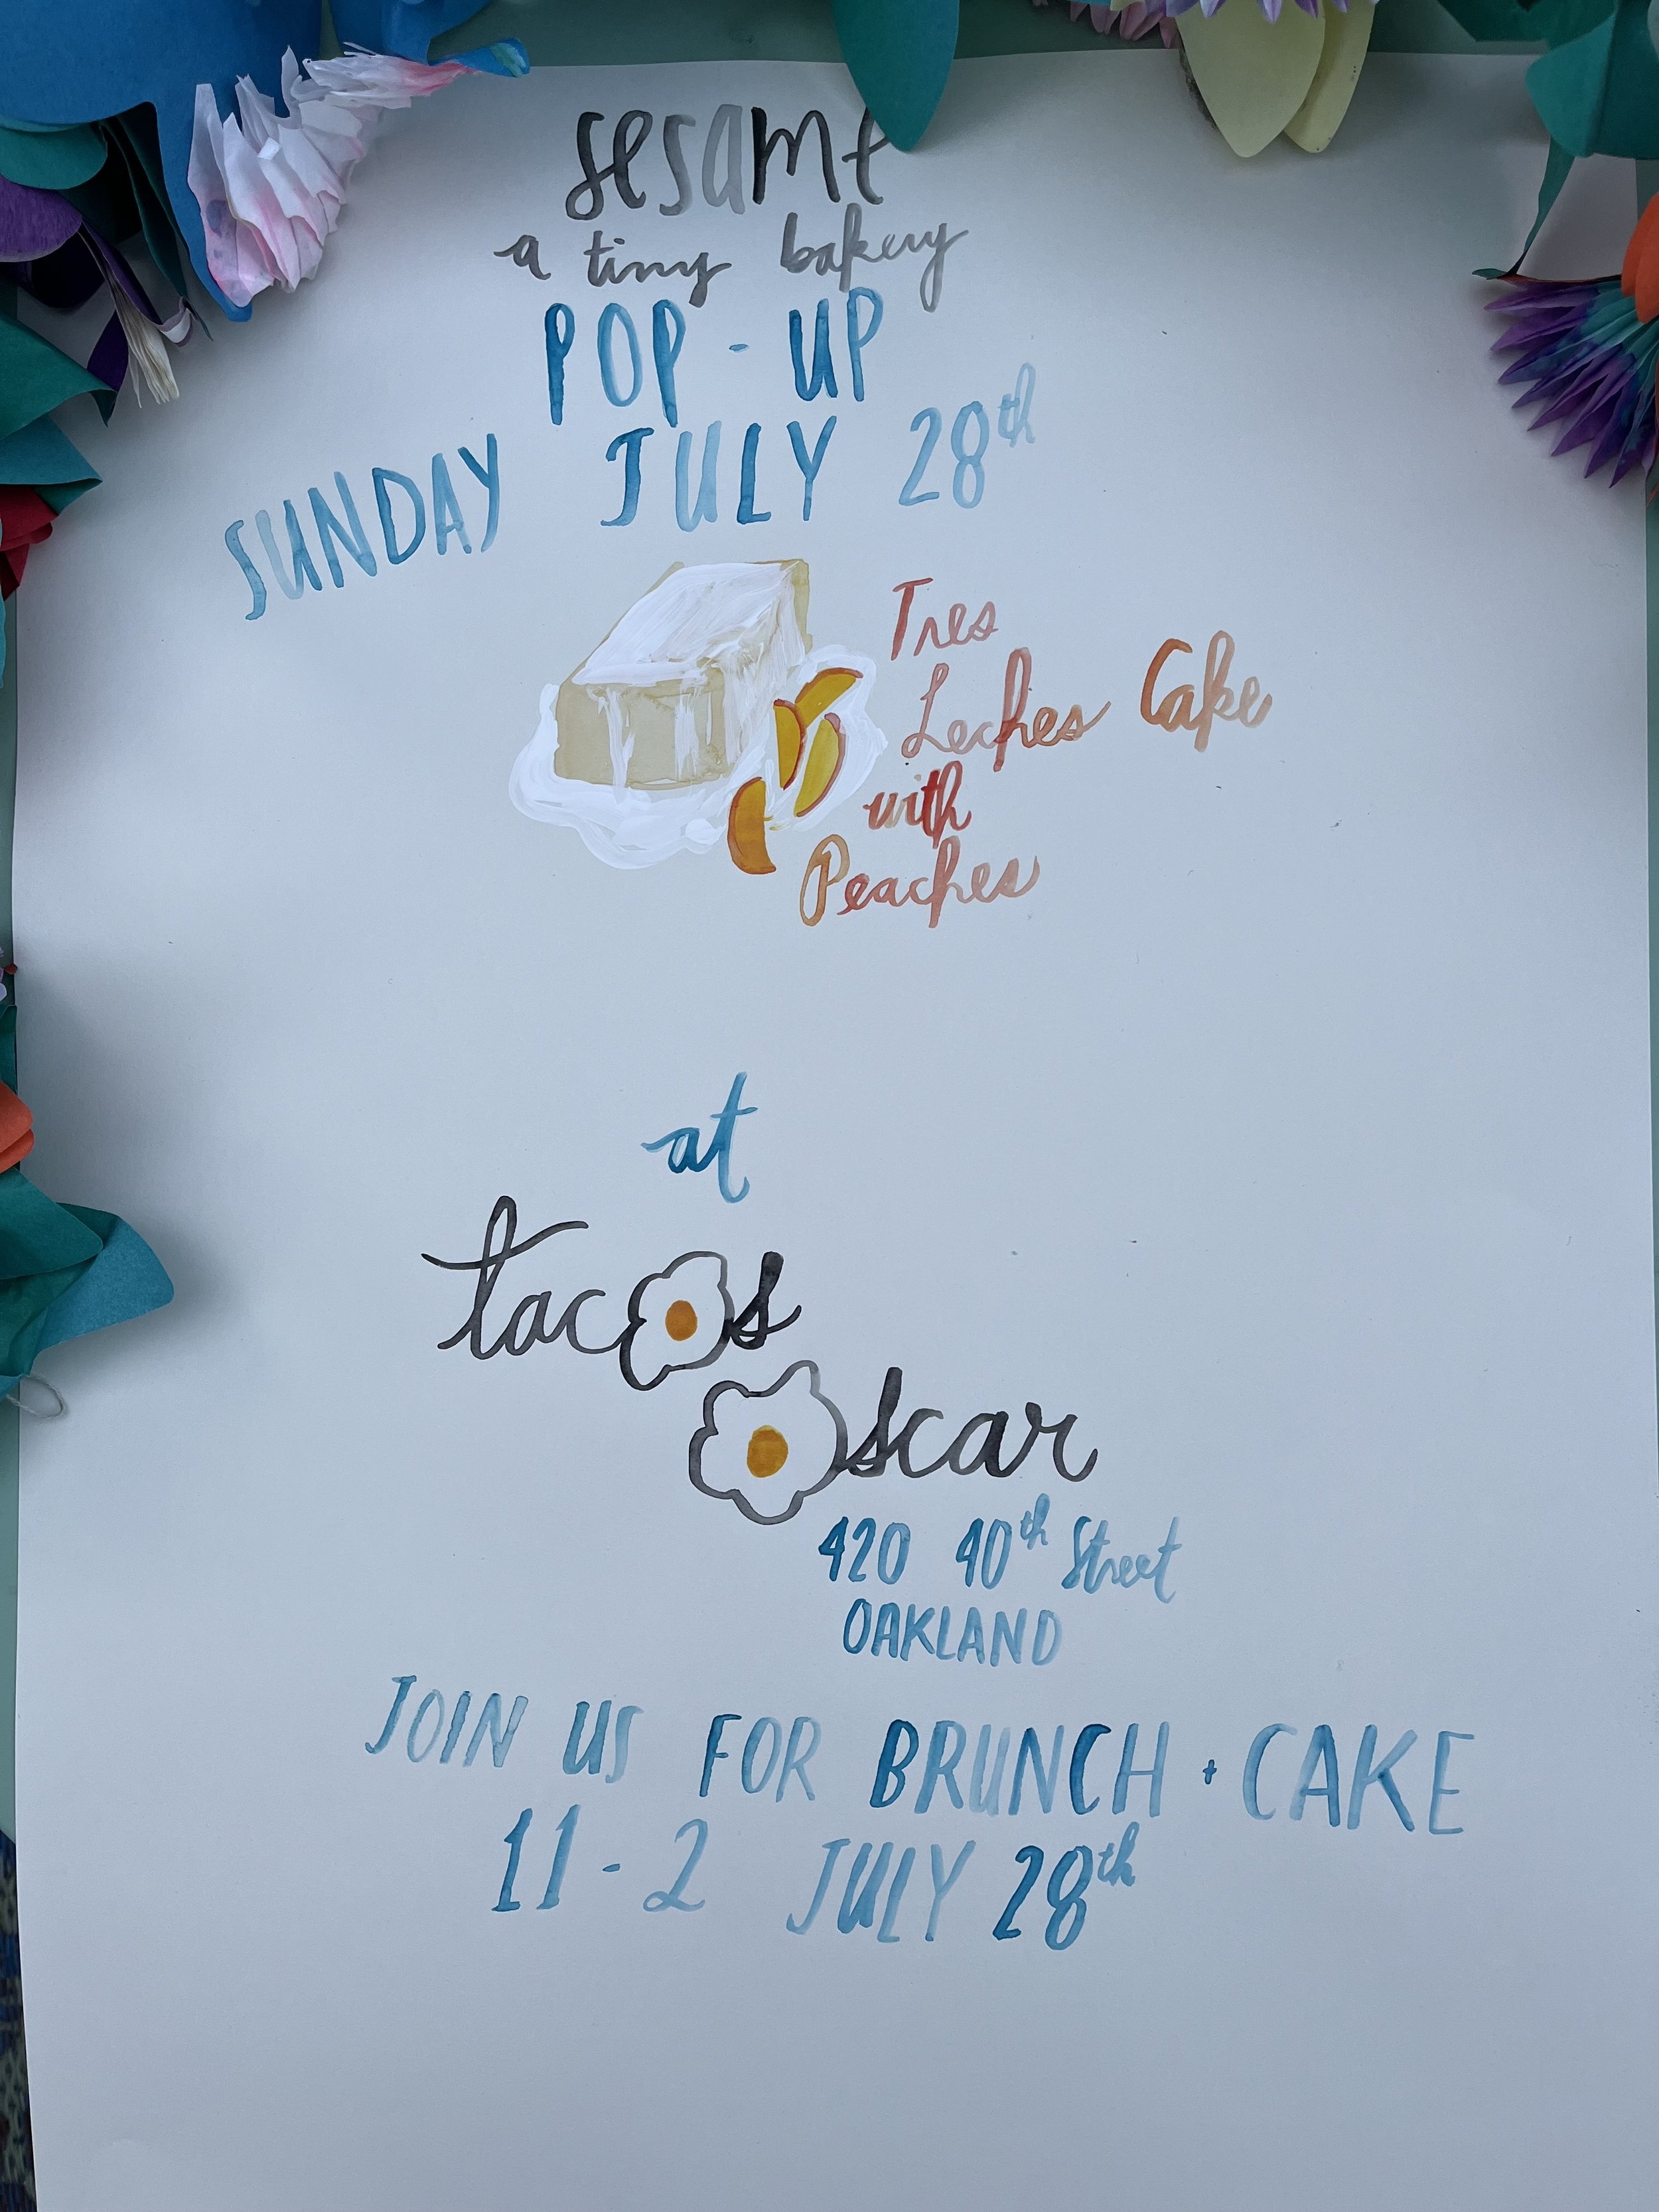 sesame
a tiny bakery
POP-UP
SUNDAY JULY 28th
Tres
Leches Cake
with
Peaches
at
tacos
Oscar
420 40th Street
OAKLAND
JOIN US FOR BRUNCH + CAKE
11-2 JULY 28th